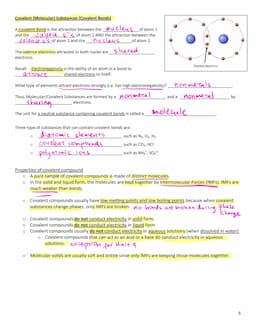 Covalent (Molecular) Substances (Covalent Bonds)
A Covalent Bond is the attraction between the nucleus of atom 1
and the valence e⁻s of atom 2 AND the attraction between the
valence e⁻s of atom 1 and the nucleus of atom 2.
The valence electrons attracted to both nuclei are shared
electrons.
Shared electrons
Recall: Electronegativity is the ability of an atom in a bond to
attract shared electrons to itself.
What type of elements attract electrons strongly (i.e. has high electronegativity)? nonmetals
Thus, Molecular/Covalent Substances are formed by a nonmetal and a nonmetal by
sharing electrons.
The unit for a neutral substance containing covalent bonds is called a molecule
Three type of substances that can contain covalent bonds are:
o diatomic elements such as N₂, O₂, H₂
o covalent compounds such as CO₂, HCl
o polyatomic ions such as NH₄⁺, SO₄²⁻
Properties of covalent compound
o A pure sample of covalent compounds is made of distinct molecules.
o In the solid and liquid form, the molecules are kept together by Intermolecular Forces (IMFs). IMFs are
much weaker than bonds.
o Covalent compounds usually have low melting points and low boiling points because when covalent
substances change phases, only IMFs are broken. no bonds are broken during phase
change
o Covalent compounds do not conduct electricity in solid form.
o Covalent compounds do not conduct electricity in liquid form.
o Covalent compounds usually do not conduct electricity in aqueous solutions (when dissolved in water).
o Covalent compounds that can act as an acid or a base do conduct electricity in aqueous
solutions. exception for this
o Molecular solids are usually soft and brittle since only IMFs are keeping those molecules together.
6